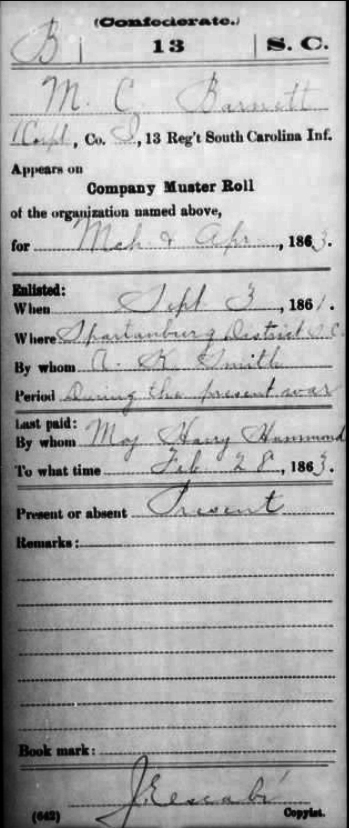 (Confederate.)
B | 13 | S. C.
M. C. Barnett
Corpl, Co. I, 13 Reg't South Carolina Inf.
Appears on
Company Muster Roll
of the organization named above,
for Mch & Apr, 1863.
Enlisted:
When Sept 3, 1861.
Where Spartanburg District S.C.
By whom A. K. Smith
Period During the present war
Last paid:
By whom Maj Harry Hammond
To what time Feb 28, 1863.
Present or absent Present
Remarks:
Book mark:
(642) Copyist.